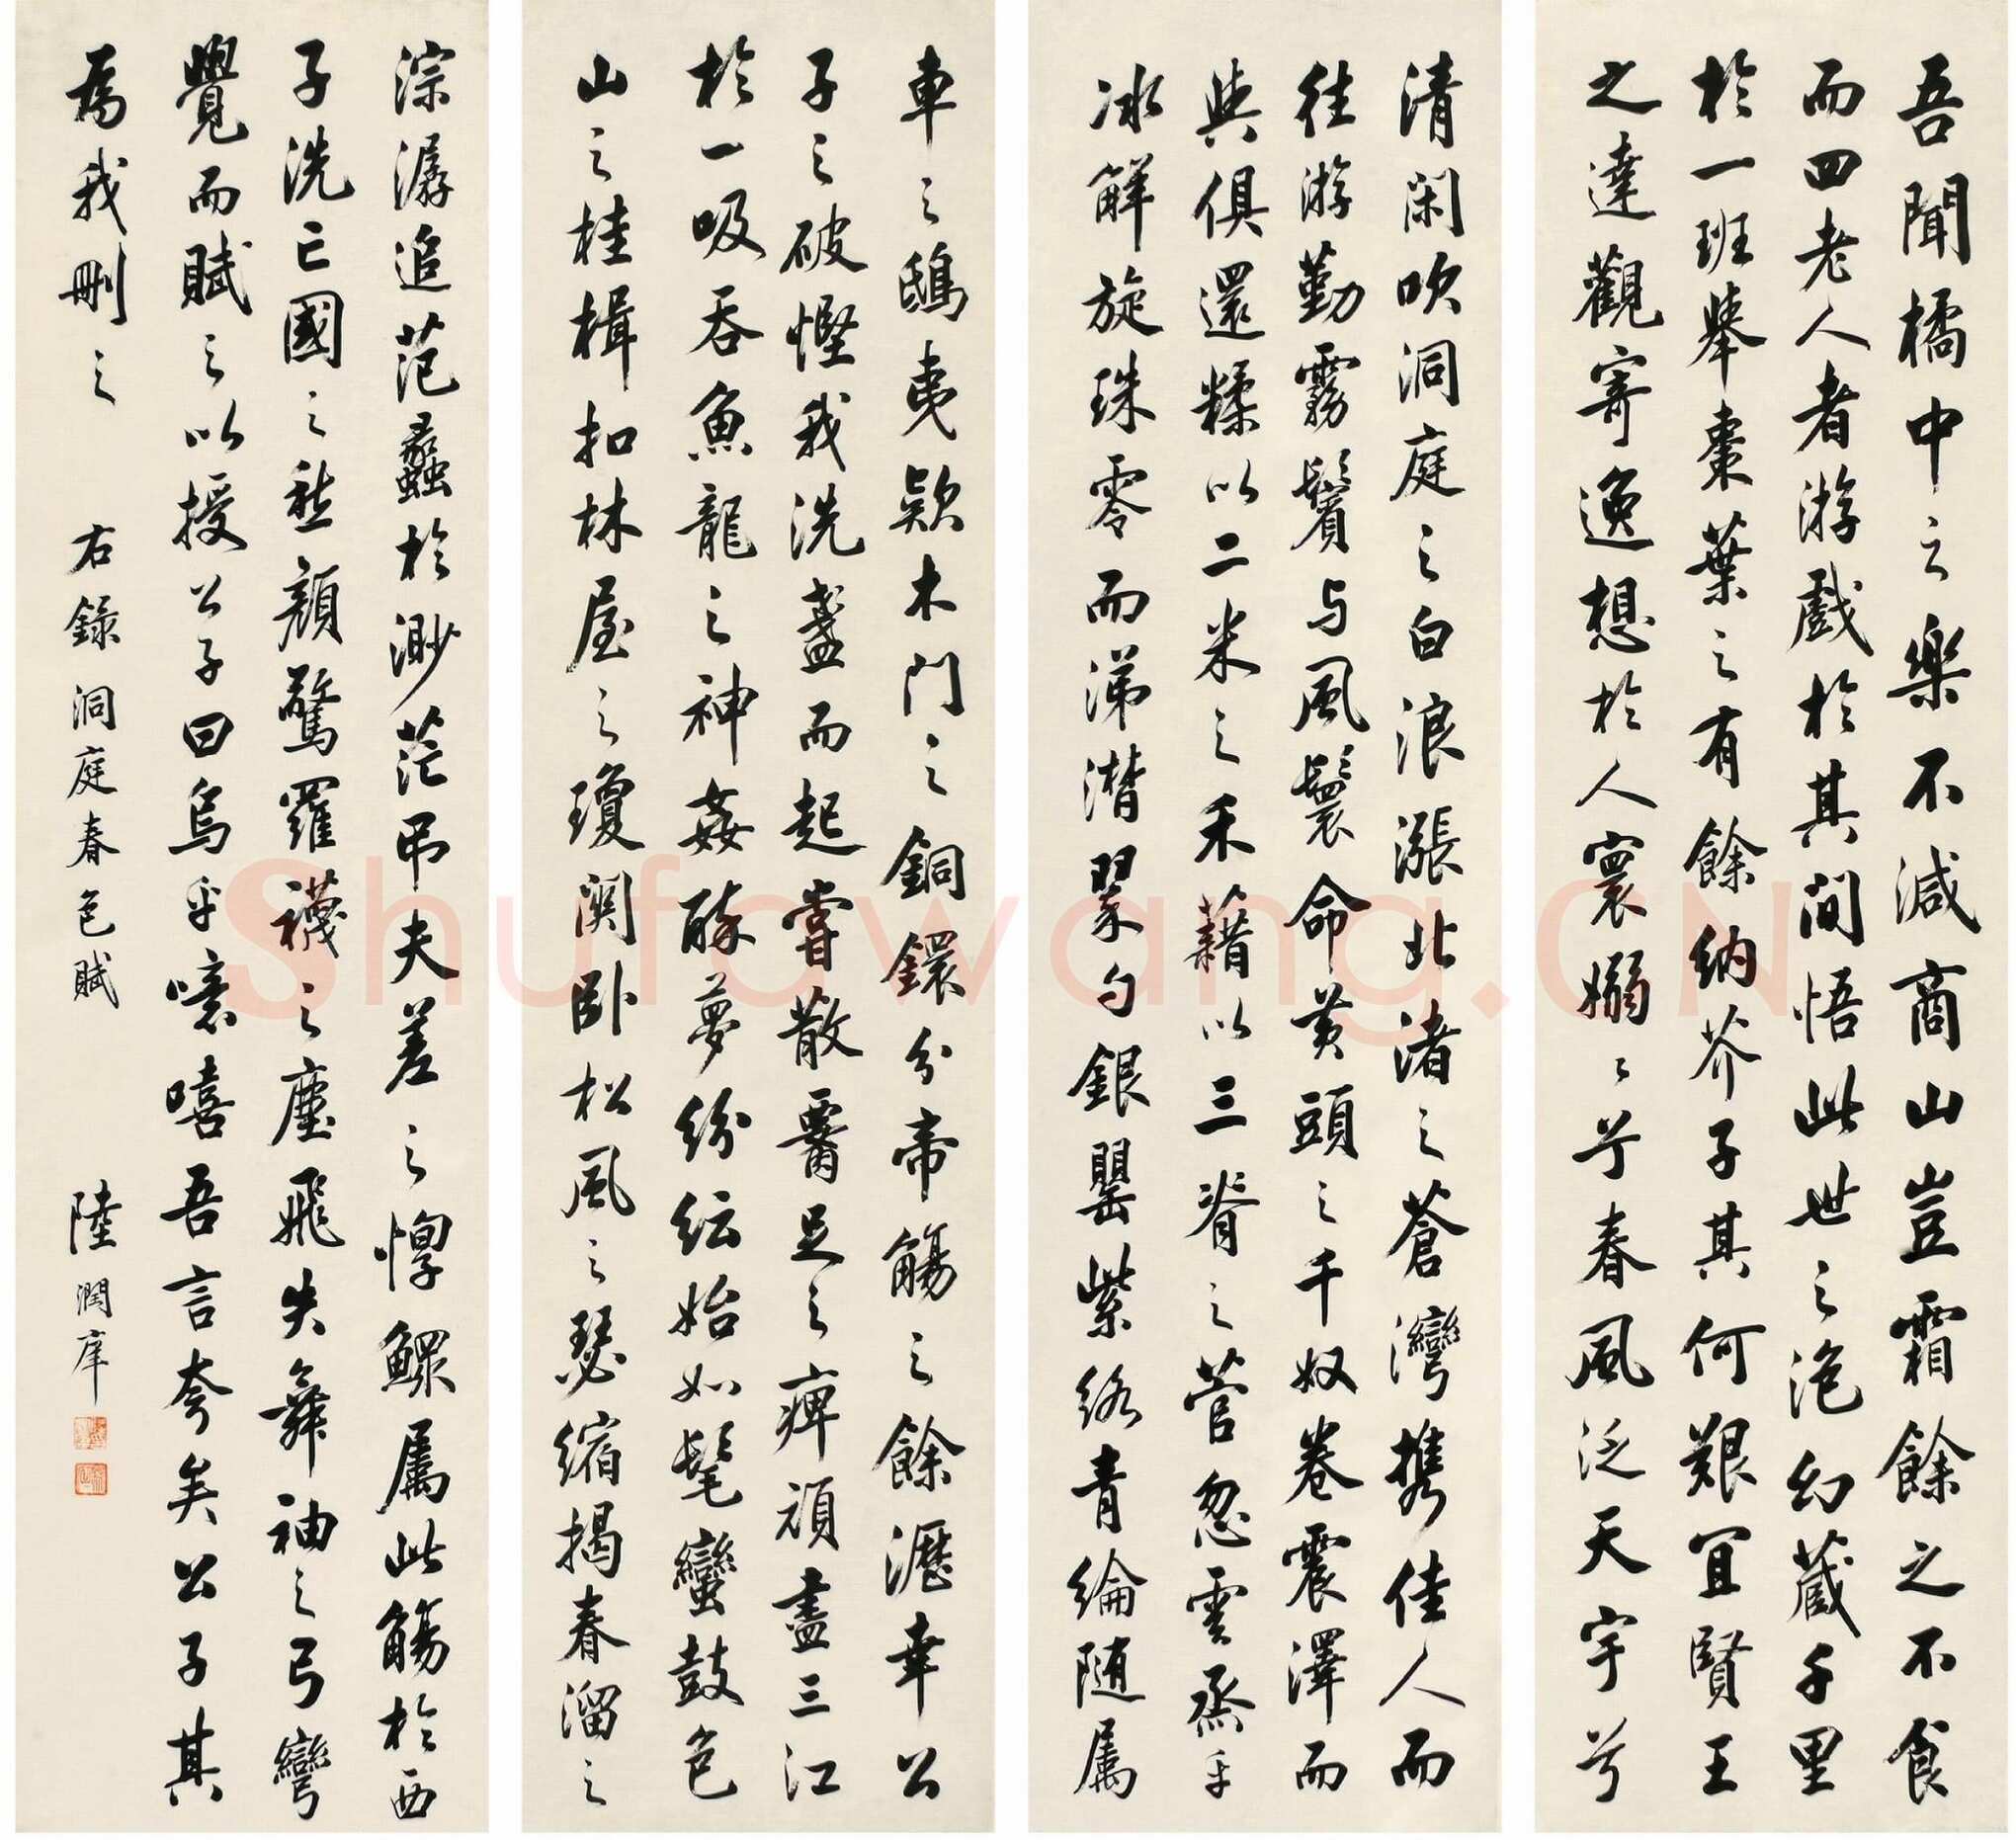 吾聞橘中之樂不減商山豈霜餘之不食
而四老人者游戲於其間悟此世之泡幻藏千里
於一班舉棗葉之有餘納芥子其何艱宜賢王
之達觀寄逸想於人寰嫋〻兮春風泛天宇兮
清閑吹洞庭之白浪漲北渚之蒼灣攜佳人而
往游勤霧鬢与風鬟命黃頭之千奴卷震澤而
與俱還糅以二米之禾藉以三脊之菅忽雲烝手
冰解旋珠零而涕潸翠勺銀罌紫絡青綸隨屬
車之鴟夷款木門之銅鐶分帝觴之餘瀝幸公
子之破慳我洗盞而起嘗散腰足之痹頑盡三江
於一吸吞魚龍之神姦醉夢紛紜始如髦蠻鼓邑
山之桂楫扣林屋之瓊關卧松風之瑟縮揭春溜之
淙潺追范蠡於渺茫弔夫差之惸鰥屬此觴於西
子洗亡國之愁顏驚羅襪之塵飛失舞袖之弓彎
覺而賦之以授公子曰烏乎噫嘻吾言夸矣公子其
為我刪之
右錄洞庭春色賦
陸潤庠
Shufawang.CN